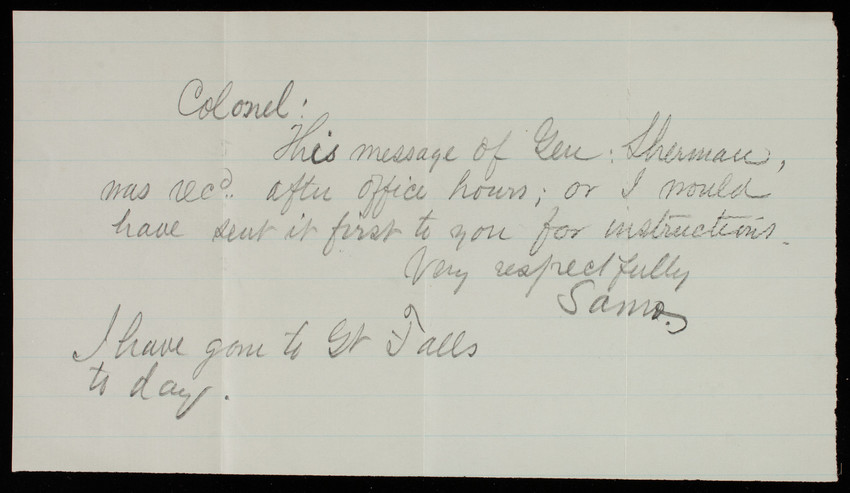 Colonel:
This message of Gen: Sherman,
was recd. after office hours; or I would
have sent it first to you for instructions.
Very respectfully
I have gone to Gt Falls
to day.